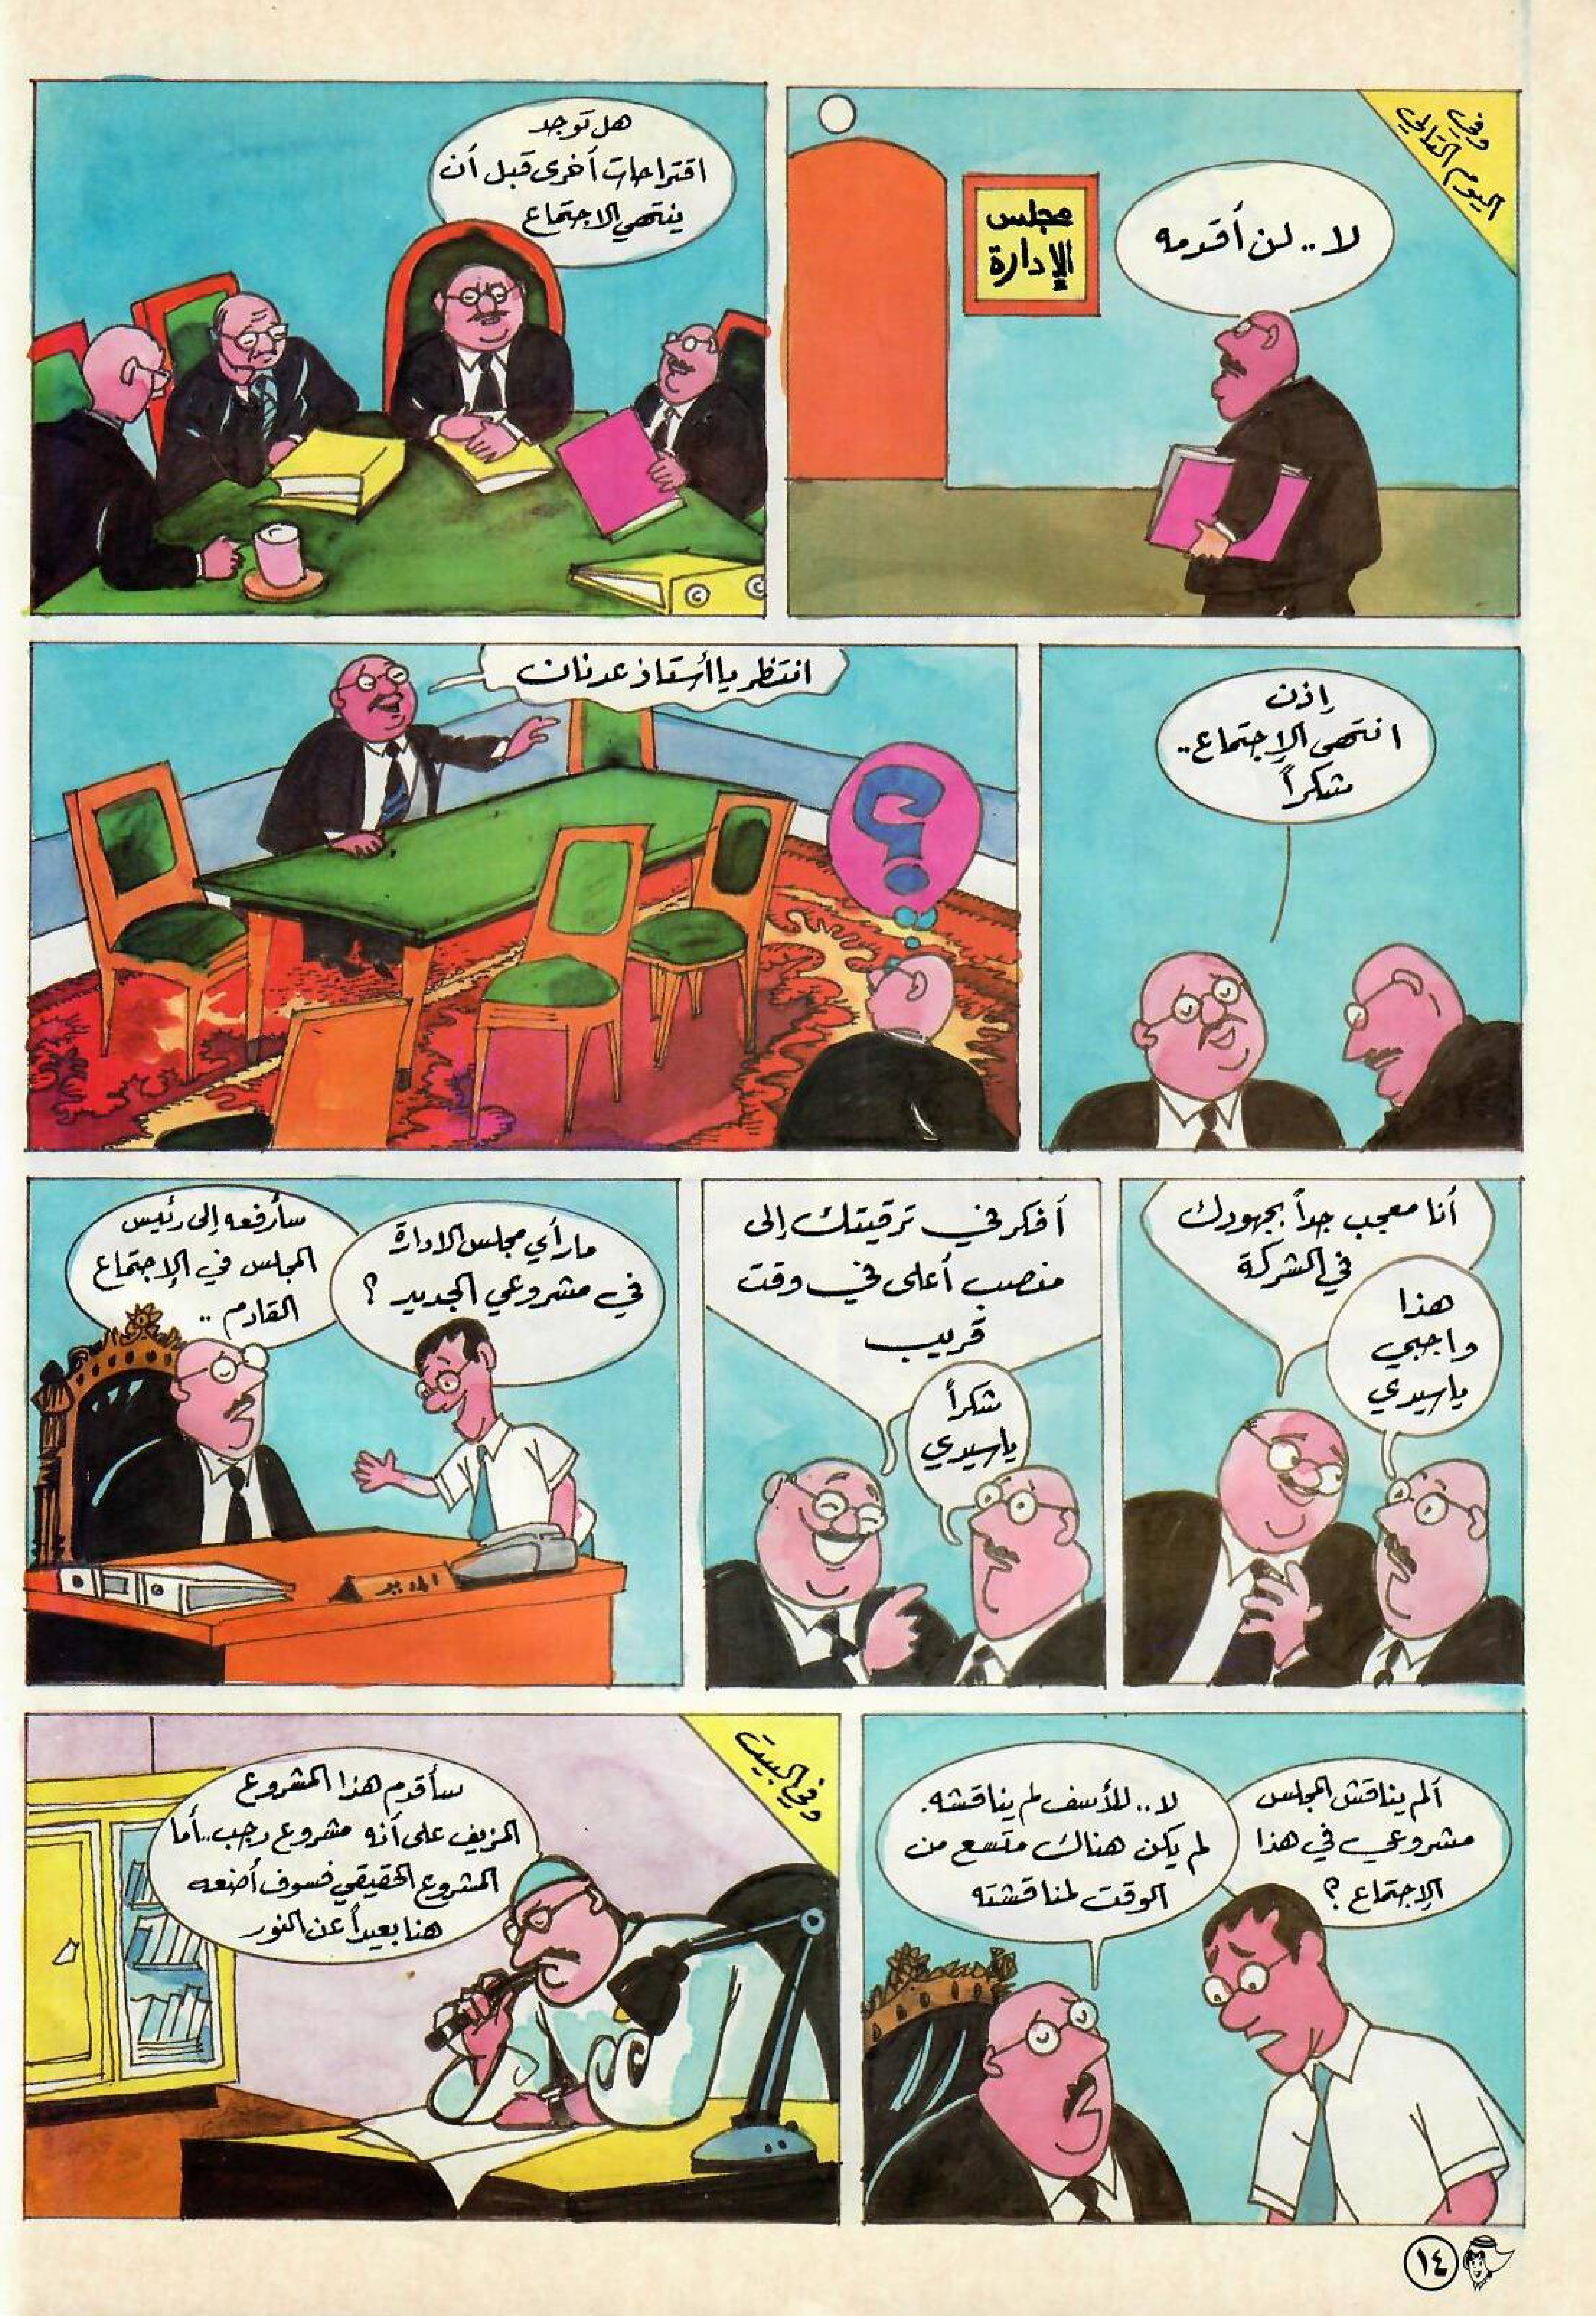 وفي
اليوم التالي
لا.. لن أقدمه
مجلس
الإدارة
هل توجد
اقتراحات أخرى قبل أن
ينتهي الاجتماع
إذن
انتهى الإجتماع..
شكراً
انتظر يا أستاذ عدنان
؟
أنا معجب جداً بجهودك
في الشركة
هذا
واجبي
ياسيدي
أفكر في ترقيتك إلى
منصب أعلى في وقت
قريب
شكراً
ياسيدي
مارأي مجلس الادارة
في مشروعي الجديد ؟
سأرفعه إلى رئيس
المجلس في الإجتماع
القادم ..
المدير
ألم يناقش المجلس
مشروعي في هذا
الإجتماع ؟
لا.. للأسف لم يناقشه.
لم يكن هناك متسع من
الوقت لمناقشته
وفي البيت
سأقدم هذا المشروع
المزيف على أنه مشروع رجب..أما
المشروع الحقيقي فسوف أضعه
هنا بعيداً عن النور
١٤